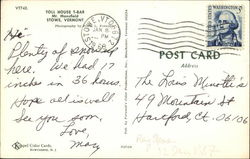 V7745
TOLL HOUSE T-BAR
Mt. Mansfield
STOWE, VERMONT
STOWE, VERMONT
JAN 8
PM
WASHINGTON
POST CARD
Address
Hi
Plenty of snow
here. We had 17
inches in 36 hours.
Hope all is well
See you soon
Love,
May
The Lou Minottis
49 Mountain St
Hartford, CT. 06106
Color Cards.